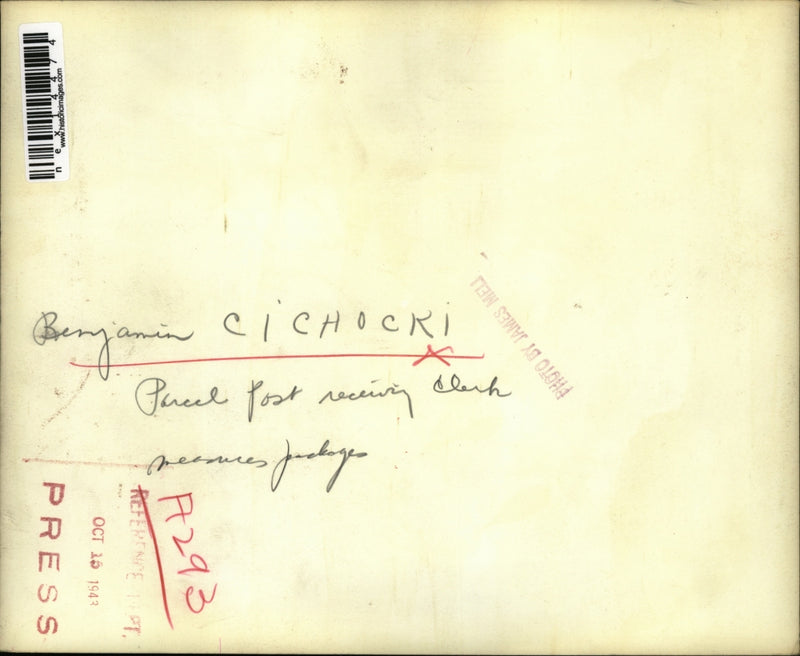 nex14474
www.historicimages.com
Benjamin CICHOCKI
PHOTO BY JAMES MELI
Parcel Post receiving Clerk
measures packages
A293
REFERENCE DEPT.
OCT 15 1943
PRESS